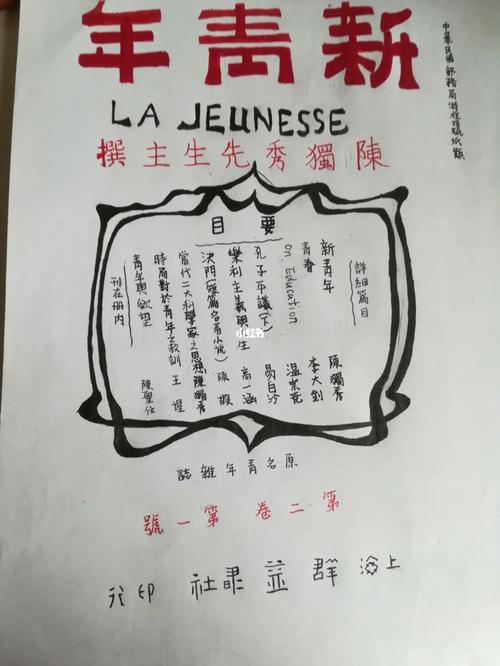 新青年
中華民國郵務局特准掛號紙類
LA JEUNESSE
陳獨秀先生主撰
要目
詳細篇目
新青年 陳獨秀
青春 李大釗
on Education 溫宗堯
孔子平議(下) 易白沙
樂利主義與生 高一涵
決鬥(短篇名著小說)
當代二大科學家之思想 陳獨秀
時局對於青年之教訓 王涅
青年與欲望 陳聖任
刊在册内
小红书
原名青年雜誌
第二卷 第一號
上海群益書社 印行